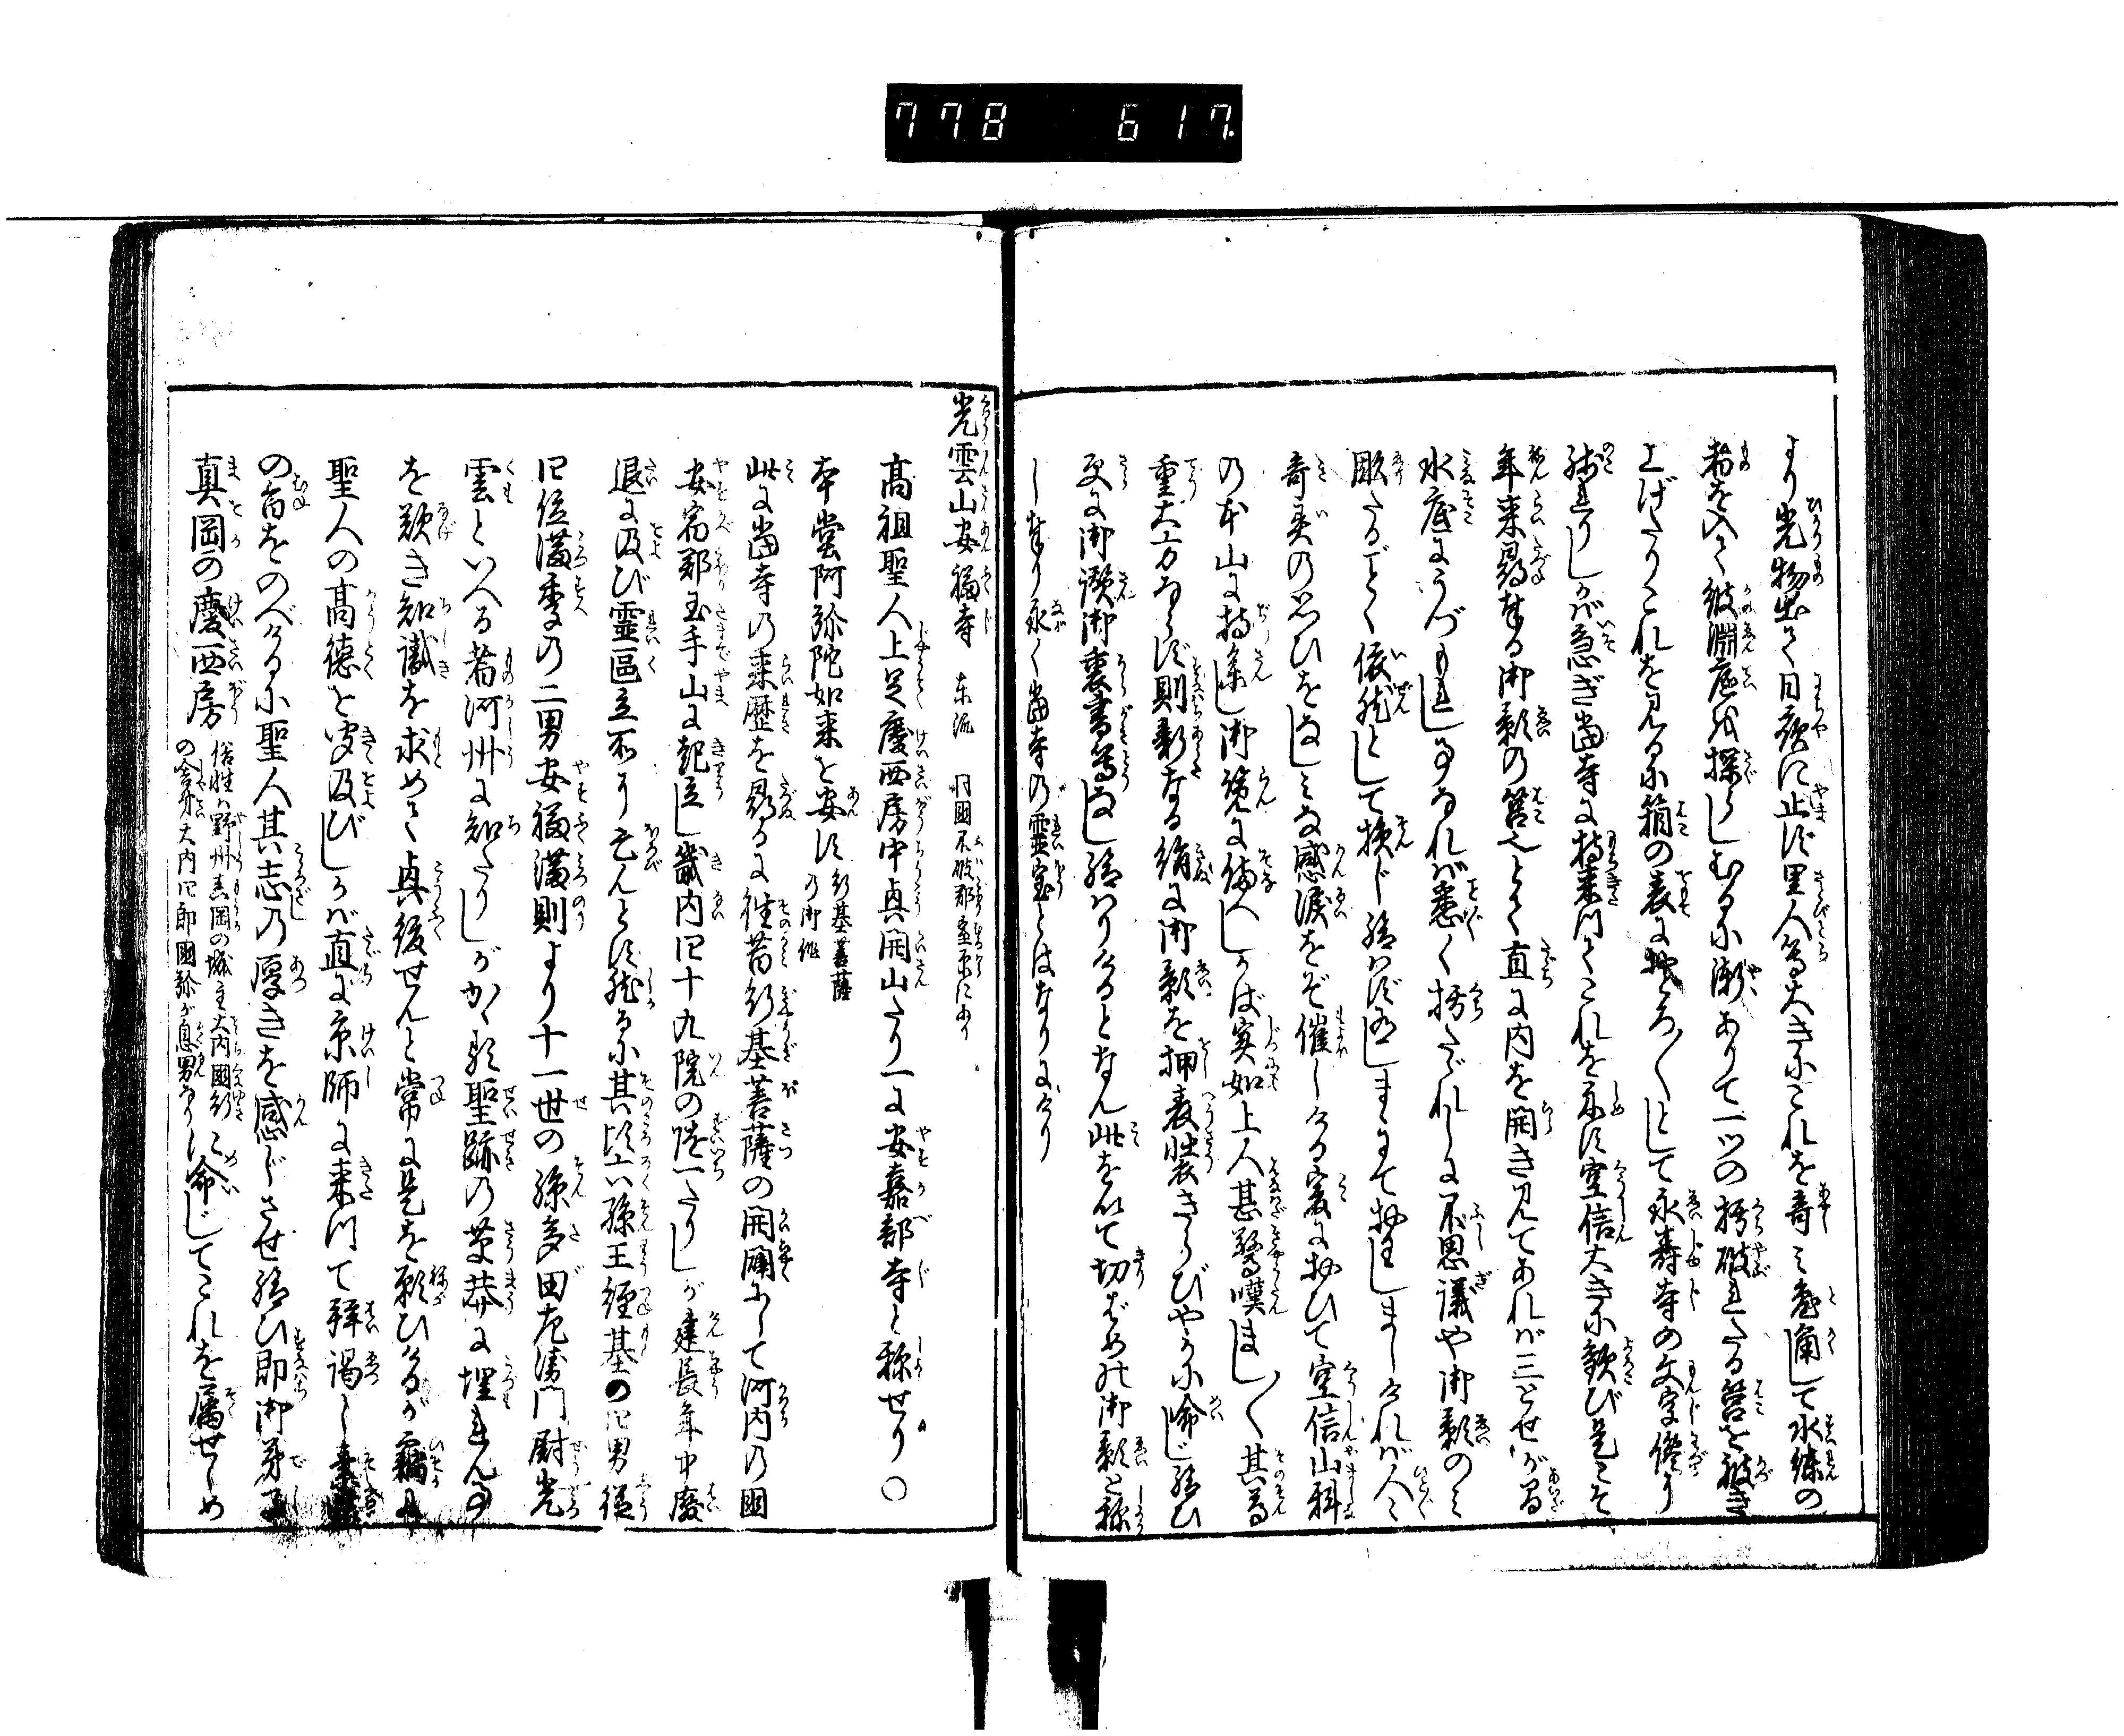 778 617
より光物出て日夜に止ず里人等大きにこれを奇み兎角して水練の
者を入て彼淵底を探らしむるに漸ありて一ツの朽破れたる筥を被き
上げたりこれを見るに箱の表に処ろ〱として永寿寺の文字僅り
残れりしかば急ぎ当寺に持来りてこれを示す空信大きに歓び是こそ
年来尋奉る御影の筥也とて直に内を開き見てあれば三とせが間
水底にうづもれし事なれば悉く朽たゞれしに不思議や御影のみ
彫たるごとく依然として損じ給はず在しましければ人〻
奇異の思ひをなしみな感涙をぞ催しける爰に於て空信山科
の本山に持参し御覧に備へしかば実如上人甚驚嘆まし〱其為
重大方ならず則新なる絹に御影を押表装きらびやかに命じ給ひ
更に御讃御裏書等なし給はりけるとなん此を以て切ばめの御影と称
し奉り永く当寺の霊宝とはなりにけり
光雲山安福寺 東流 同国不破郡にあり
高祖聖人上足慶西房中真開山たり一に安嘉部寺と称せり〇
本堂阿弥陀如来を安ず 行基菩薩の御作
此に当寺の来歴を尋るに往昔行基菩薩の開闢にして河内の国
安宿郡玉手山に起立し畿内四十九院の随一たりしが建長年中廃
退に及び霊区立所に亡んとす然るに其頃六孫王経基の四男従
四位満季の二男安福満則より十一世の孫多田左衛門尉光
雲といへる者河州に知たりしがかゝる聖跡の草莽に埋れん事
を歎き知識を求めて真後せんと常に是を願ひけるが竊に
聖人の高徳を聞及びしかば直に京師に来つて拝謁し
の旨をのべけるに聖人其志の厚きを感じさせ給ひ即御弟子
真岡の慶西房 俗姓は野州真岡の城主大内国行の舎弟大内四郎国弥が息男なり に命じてこれを属せしめ